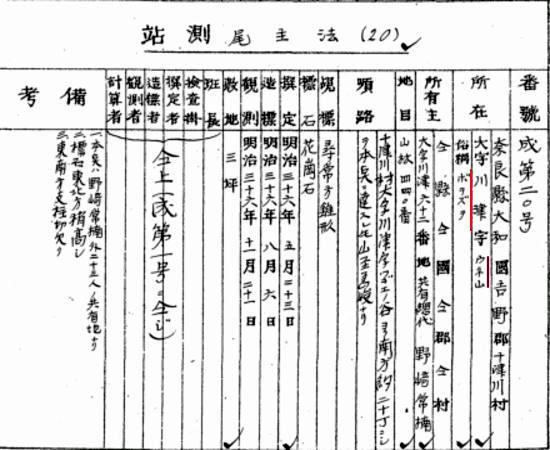 (20) 法主尾 測站
番號 成第二〇号
所在 奈良縣大和國吉野郡十津川村
大字川津字ウネ山
俗稱 ホラズヲ
所有主 仝縣仝國仝郡仝村
大字川津六十二番地 共有總代 野﨑常楠
地目 山林 四四〇番
順路 十津川村大字川津字
ヲ本点ニ達ス
覘標 尋常方錐形
標石 花崗石
撰定 明治三十六年五月二十三日
造標 明治三十六年八月六日
觀測 明治三十六年十一月二十一日
敷地 三坪
班長
檢查掛
撰定者
造標者
觀測者
計算者
仝上(成第一号ニ仝ジ)
備考
一、本点ハ野﨑常楠外二十三人ノ共有地ナリ
二、標石東北方稍高シ
三、東南方支柱切欠ク